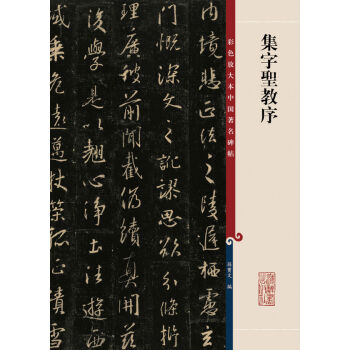 集字聖教序
彩色放大本中国著名碑帖
孫寶文 編
內境悲正法之陵遲栖慮玄
門慨深文之訛謬思欲分條析
理廣彼前聞截偽續真開茲
後學是以翹心淨土法遊西
域乘危遠邁杖策孤征積雪